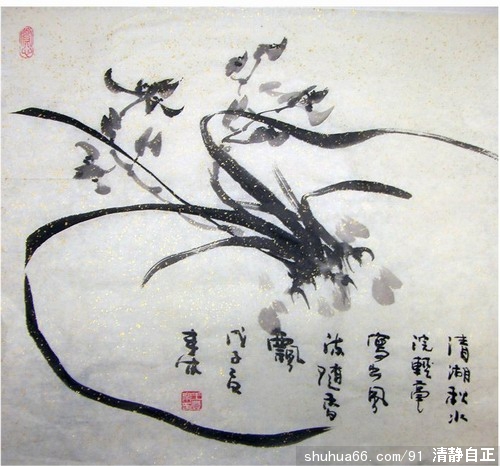 清湖秋水
浣輕毫
寫出風
流隨香
飄
戊子夏
shuhua66.com/91 清静自正